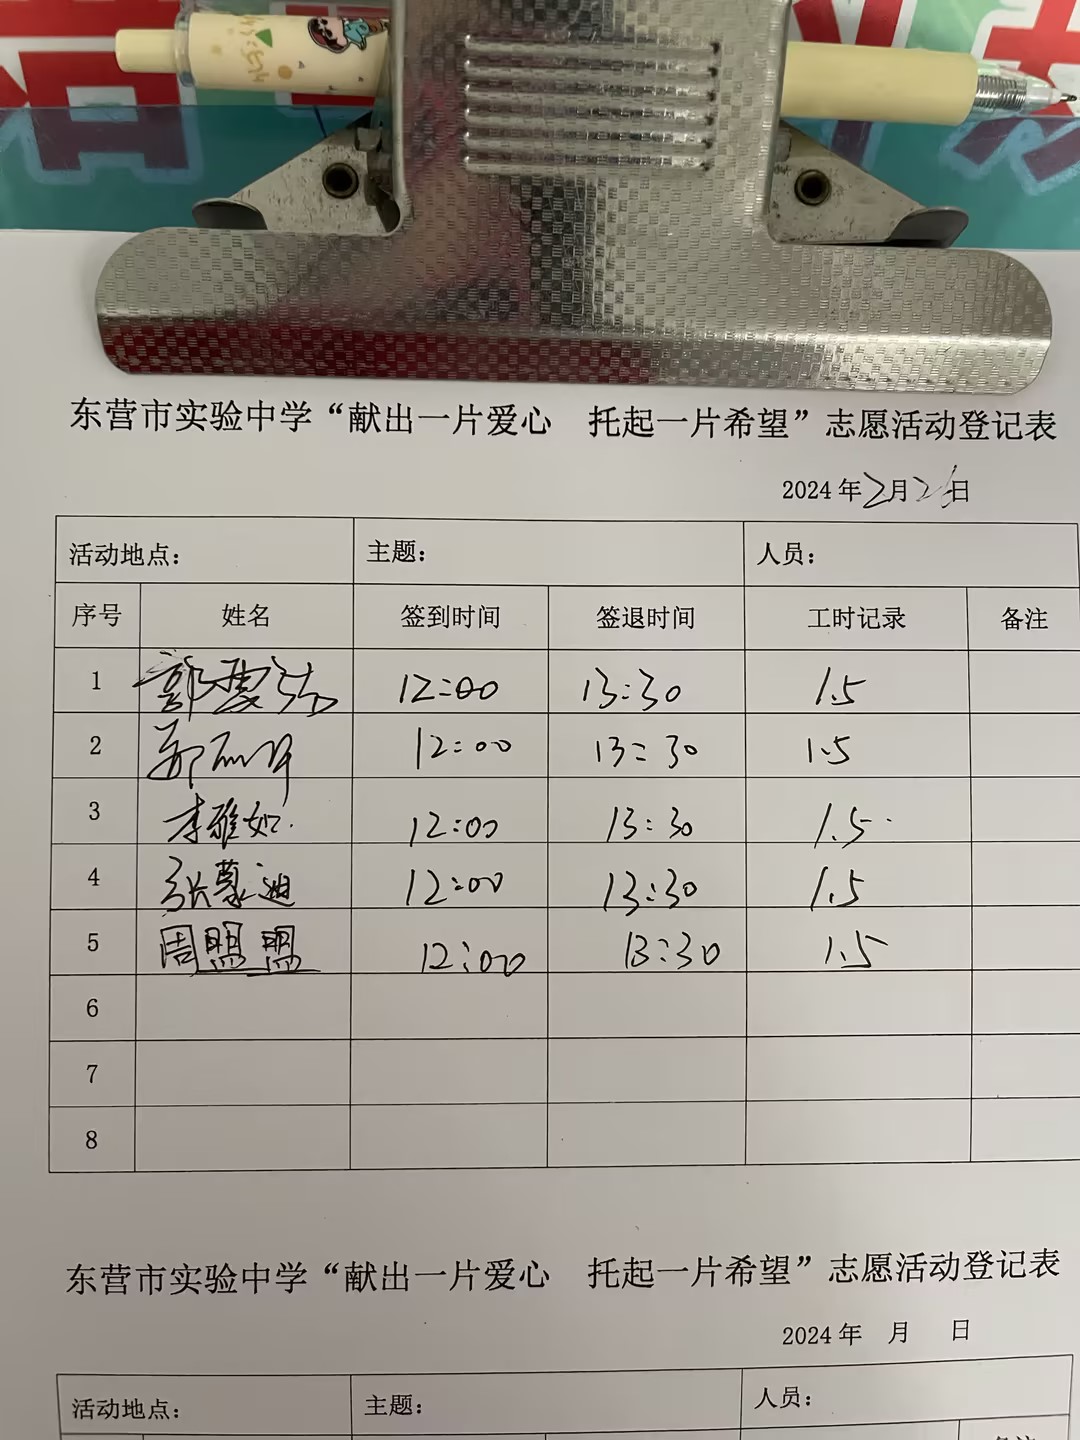 东营市实验中学“献出一片爱心 托起一片希望”志愿活动登记表
2024年2月26日
活动地点: 主题: 人员:
序号 姓名 签到时间 签退时间 工时记录 备注
1 郭 12:00 13:30 1.5
2 12:00 13:30 1.5
3 李雅如 12:00 13:30 1.5
4 张蒙迪 12:00 13:30 1.5
5 周盟盟 12:00 13:30 1.5
6
7
8
东营市实验中学“献出一片爱心 托起一片希望”志愿活动登记表
2024年 月 日
活动地点: 主题: 人员:
备注